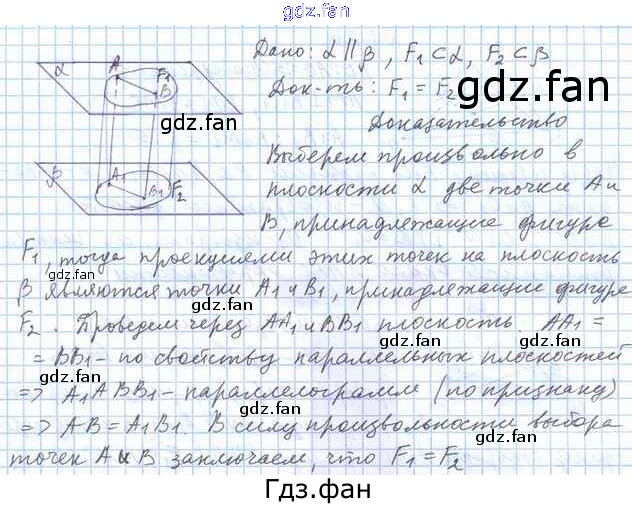 gdz.fan
Дано: α || β, F₁ ⊂ α, F₂ ⊂ β
Док-ть: F₁ = F₂
gdz.fan
Доказательство
Выберем произвольно в
плоскости α две точки A и
B, принадлежащие фигуре
F₁, тогда проекциями этих точек на плоскость
β являются точки A₁ и B₁, принадлежащие фигуре
F₂. Проведем через AA₁ и BB₁ плоскость. AA₁ =
= BB₁ - по свойству параллельных плоскостей
=> A₁ABB₁ - параллелограмм (по признаку)
=> AB = A₁B₁. В силу произвольности выбора
точек A и B заключаем, что F₁ = F₂
α A F₁ B
gdz.fan
β A₁ B₁ F₂
gdz.fan
gdz.fan
gdz.fan
gdz.fan
gdz.fan
gdz.fan
gdz.fan
Гдз.фан